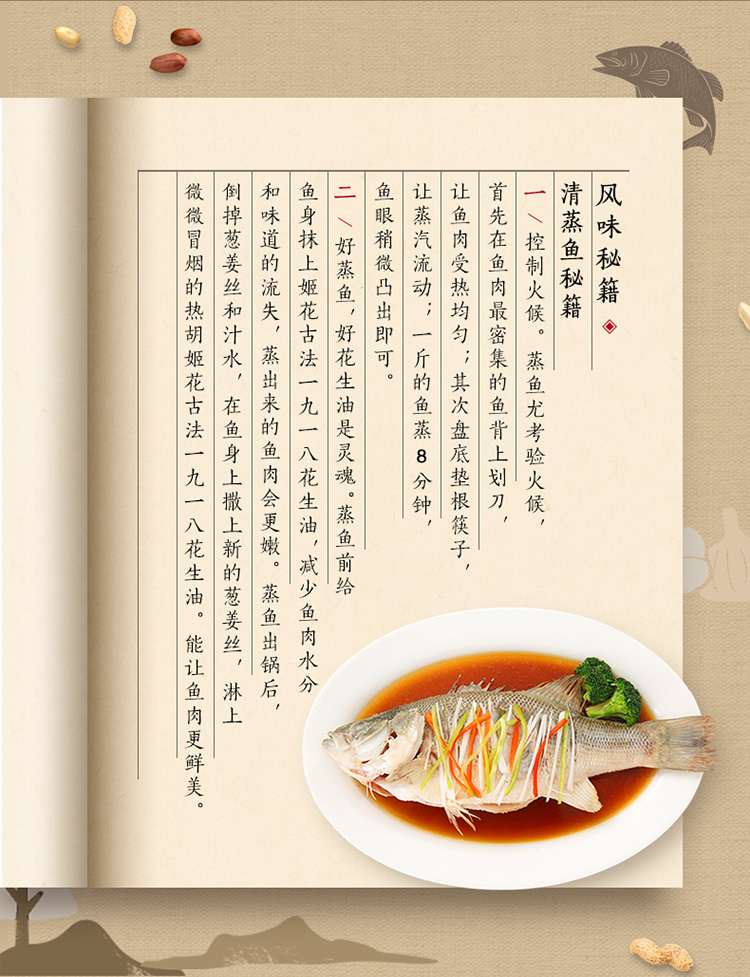 风味秘籍
清蒸鱼秘籍
一、控制火候。蒸鱼尤考验火候，
首先在鱼肉最密集的鱼背上划刀，
让鱼肉受热均匀；其次盘底垫根筷子，
让蒸汽流动；一斤的鱼蒸8分钟，
鱼眼稍微凸出即可。
二、好蒸鱼，好花生油是灵魂。蒸鱼前给
鱼身抹上姬花古法一九一八花生油，减少鱼肉水分
和味道的流失，蒸出来的鱼肉会更嫩。蒸鱼出锅后，
倒掉葱姜丝和汁水，在鱼身上撒上新的葱姜丝，淋上
微微冒烟的热胡姬花古法一九一八花生油。能让鱼肉更鲜美。